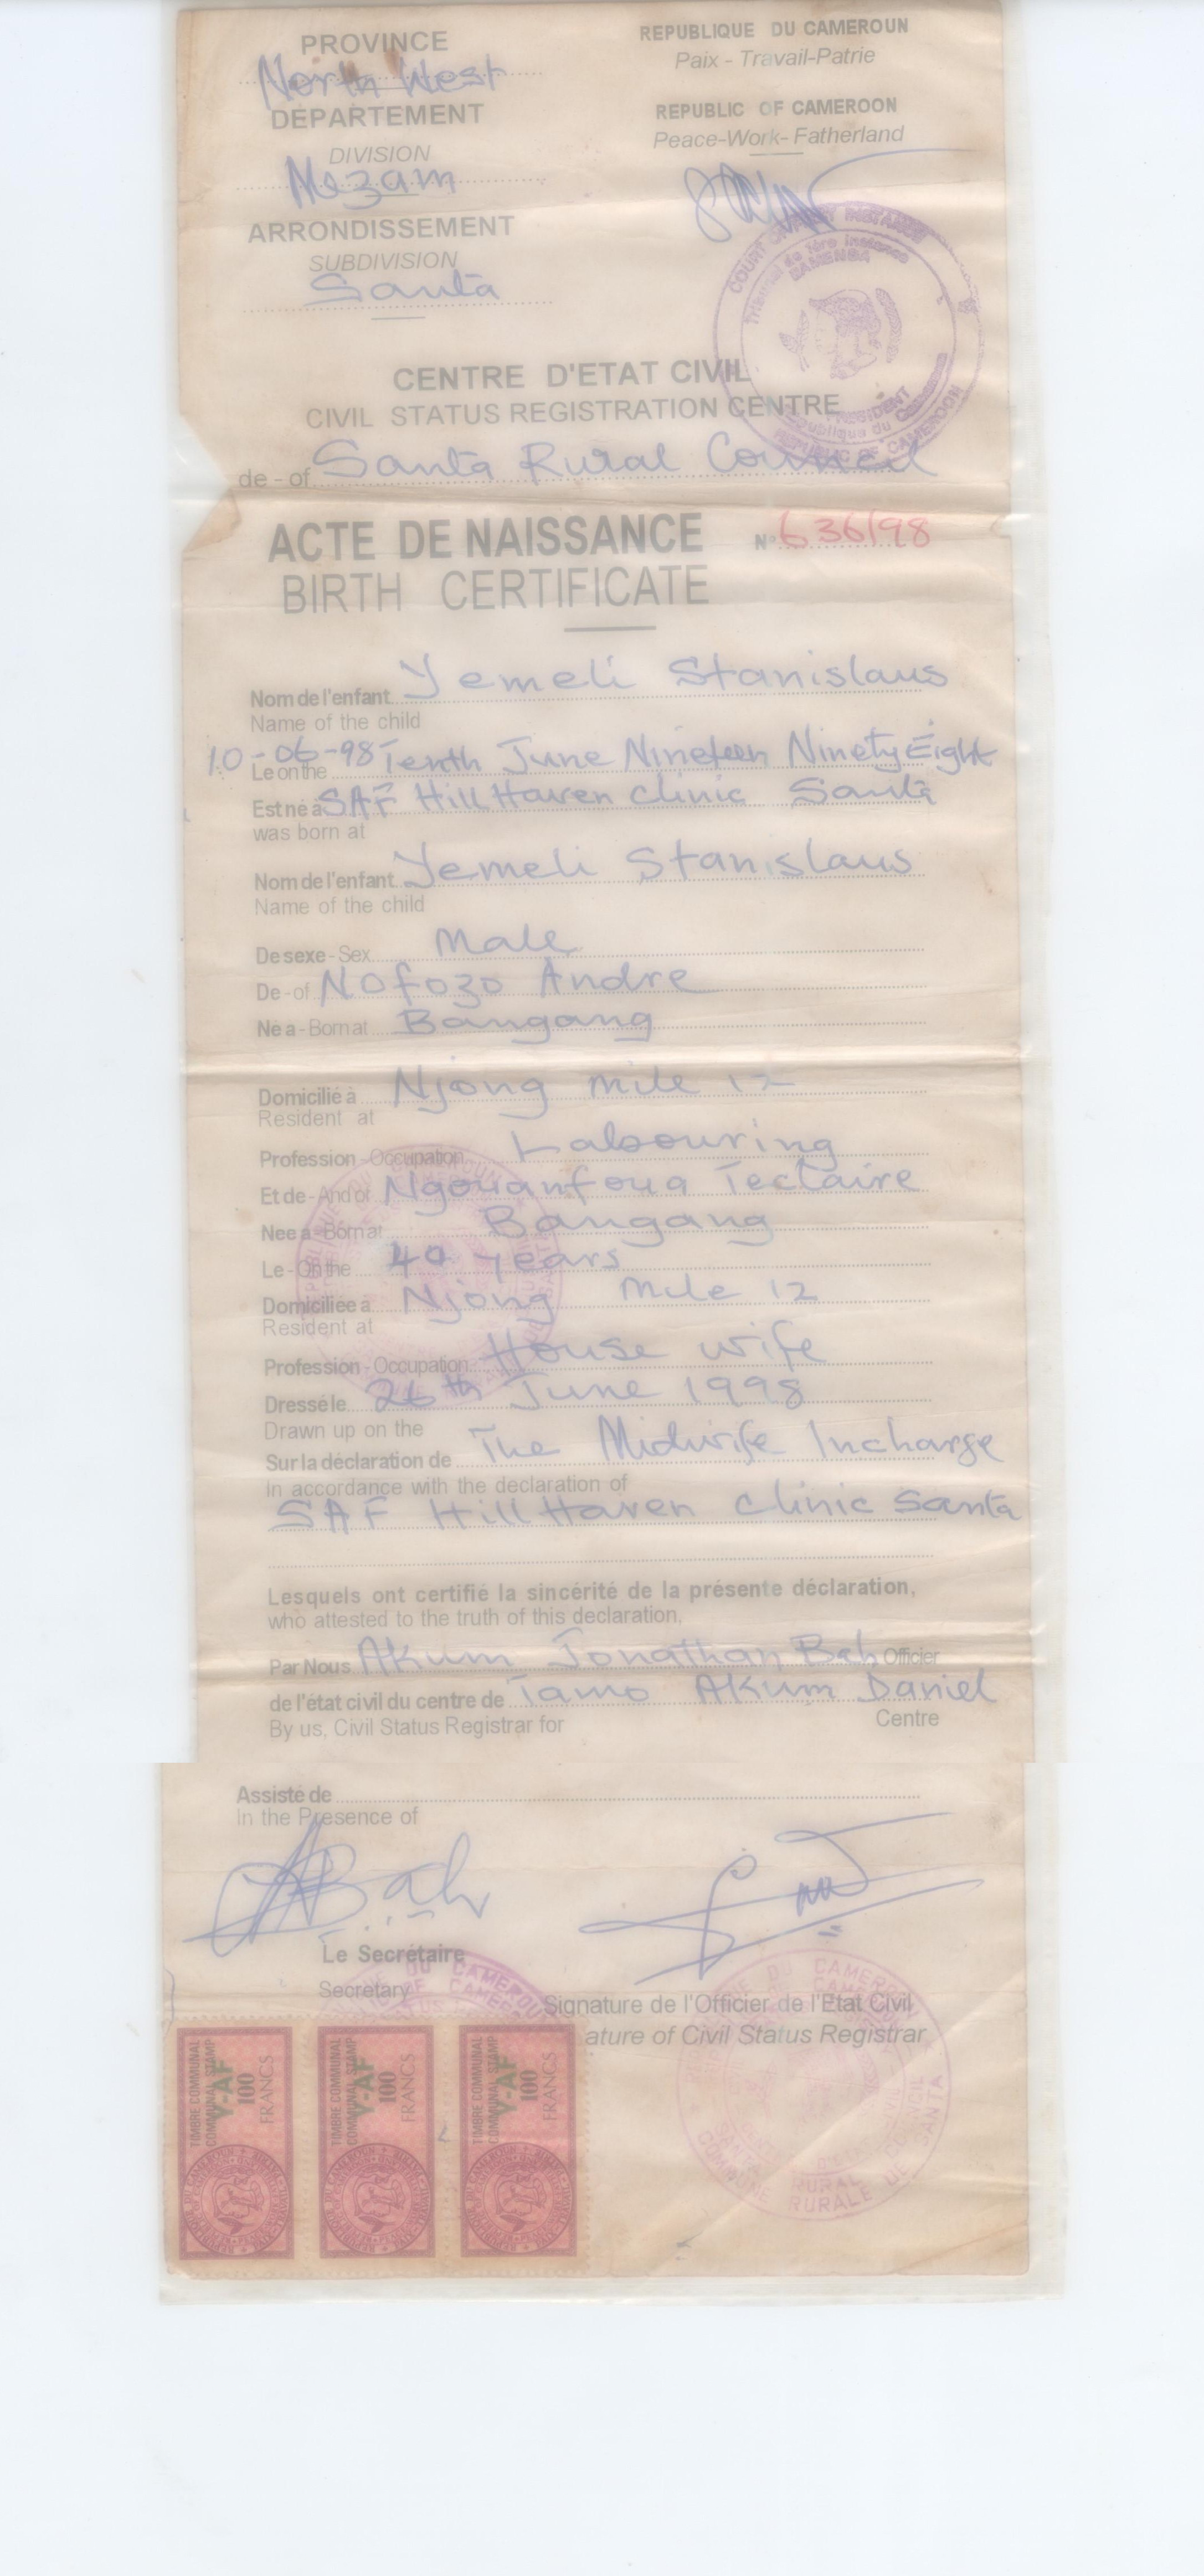 PROVINCE
North West
DEPARTEMENT
DIVISION
Mezam
ARRONDISSEMENT
SUBDIVISION
Santa
REPUBLIQUE DU CAMEROUN
Paix - Travail-Patrie
REPUBLIC OF CAMEROON
Peace-Work- Fatherland
COURT OF FIRST INSTANCE
Tribunal de 1ère Instance
BAMENDA
PRESIDENT
République du Cameroun
REPUBLIC OF CAMEROON
CENTRE D'ETAT CIVIL
CIVIL STATUS REGISTRATION CENTRE
de - of Santa Rural Council
ACTE DE NAISSANCE N° 636/98
BIRTH CERTIFICATE
Nom de l'enfant Yemeli Stanislaus
Name of the child
10-06-98 Tenth June Nineteen Ninety Eight
Le on the
Est né à SAF Hill Haven Clinic Santa
was born at
Nom de l'enfant Yemeli Stanislaus
Name of the child
De sexe - Sex Male
De - of Nofozo Andre
Né a - Born at Bangang
Domicilié à Njong mile 12
Resident at
Profession - Occupation Labouring
Et de - And of Ngouanfoua Teclaire
Nee à - Born at Bangang
Le - On the 40 years
Domiciliée à Njong Mile 12
Resident at
Profession - Occupation House wife
Dressé le 26th June 1998
Drawn up on the
Sur la déclaration de The Midwife Incharge
In accordance with the declaration of
SAF Hill Haven Clinic Santa
Lesquels ont certifié la sincérité de la présente déclaration,
who attested to the truth of this declaration,
Par Nous Akum Jonathan Bah Officier
de l'état civil du centre de Tamo Akum Daniel
By us, Civil Status Registrar for Centre
Assisté de
In the Presence of
ABah
Le Secrétaire
Secretary
Signature de l'Officier de l'Etat Civil
ature of Civil Status Registrar
DU CAMEROUN
SANTA RURAL COUNCIL
COMMUNE RURALE DE SANTA
TIMBRE COMMUNAL
COMMUNAL STAMP
V-AF
100
FRANCS
TIMBRE COMMUNAL
COMMUNAL STAMP
V-AF
100
FRANCS
TIMBRE COMMUNAL
COMMUNAL STAMP
V-AF
100
FRANCS